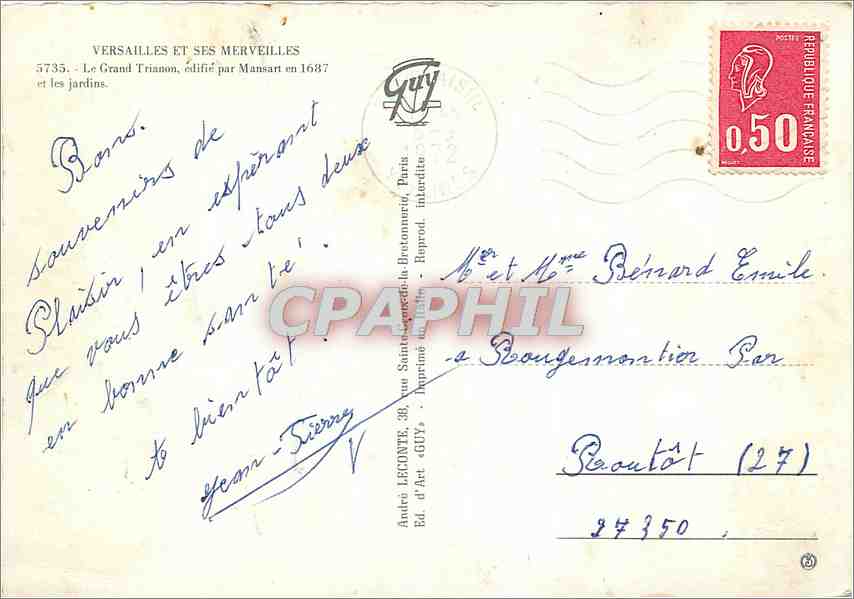 VERSAILLES ET SES MERVEILLES
5735. - Le Grand Trianon, édifié par Mansart en 1687
et les jardins.
Bons
souvenirs de
Plaisir, en espérant
que vous êtes tous deux
en bonne santé.
to bientôt.
Jean-Pierre
Guy
André LECONTE, 38, rue Sainte-Croix-de-la-Bretonnerie, Paris
Ed. d'Art «GUY» - Imprimé en Italie - Reprod. interdite
POSTES
REPUBLIQUE FRANÇAISE
0,50
Mr et Mme Bénard Emile.
a Rougemontier Par
Routôt (27)
27350.
CPAPHIL